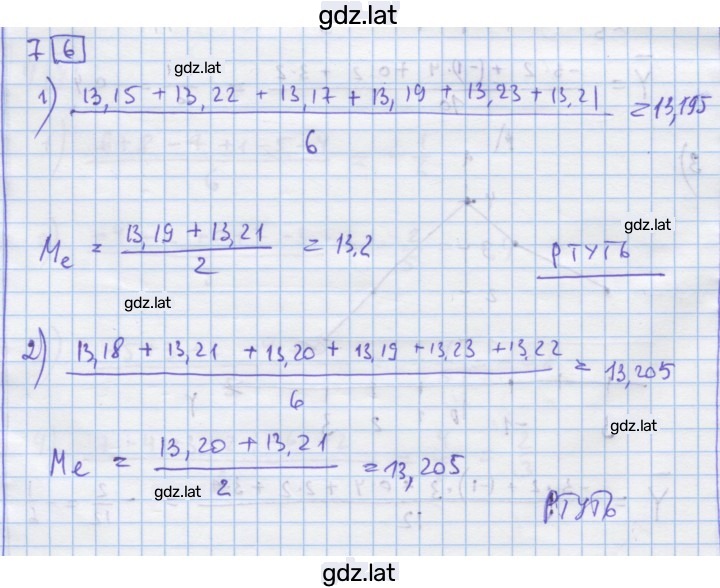 gdz.lat
7 6
gdz.lat
1) 13,15 + 13,22 + 13,17 + 13,19 + 13,23 + 13,21 = 13,195
6
gdz.lat
Me = 13,19 + 13,21 = 13,2
2
РТУТЬ
gdz.lat
2) 13,18 + 13,21 + 13,20 + 13,19 + 13,23 + 13,22 = 13,205
6
gdz.lat
Me = 13,20 + 13,21 = 13,205
2
gdz.lat
РТУТЬ
gdz.lat